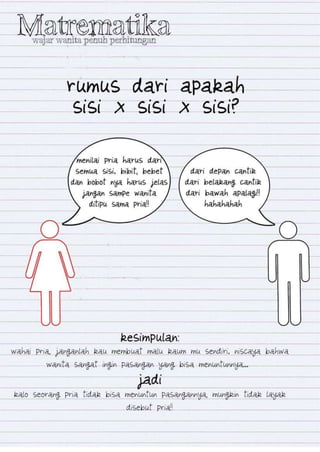 Matrematika
wajar wanita penuh perhitungan
rumus dari apakah
sisi x sisi x sisi?
menilai pria harus dari
semua sisi, bibit, bebet
dan bobot nya harus jelas
jangan sampe wanita
ditipu sama pria!!
dari depan cantik
dari belakang cantik
dari bawah apalagi!!
hahahahah
kesimpulan:
wahai pria, janganlah kau membuat malu kaum mu sendiri, niscaya bahwa
wanita sangat ingin pasangan yang bisa menuntunnya...
jadi
kalo seorang pria tidak bisa menuntun pasangannya, mungkin tidak layak
disebut pria!!